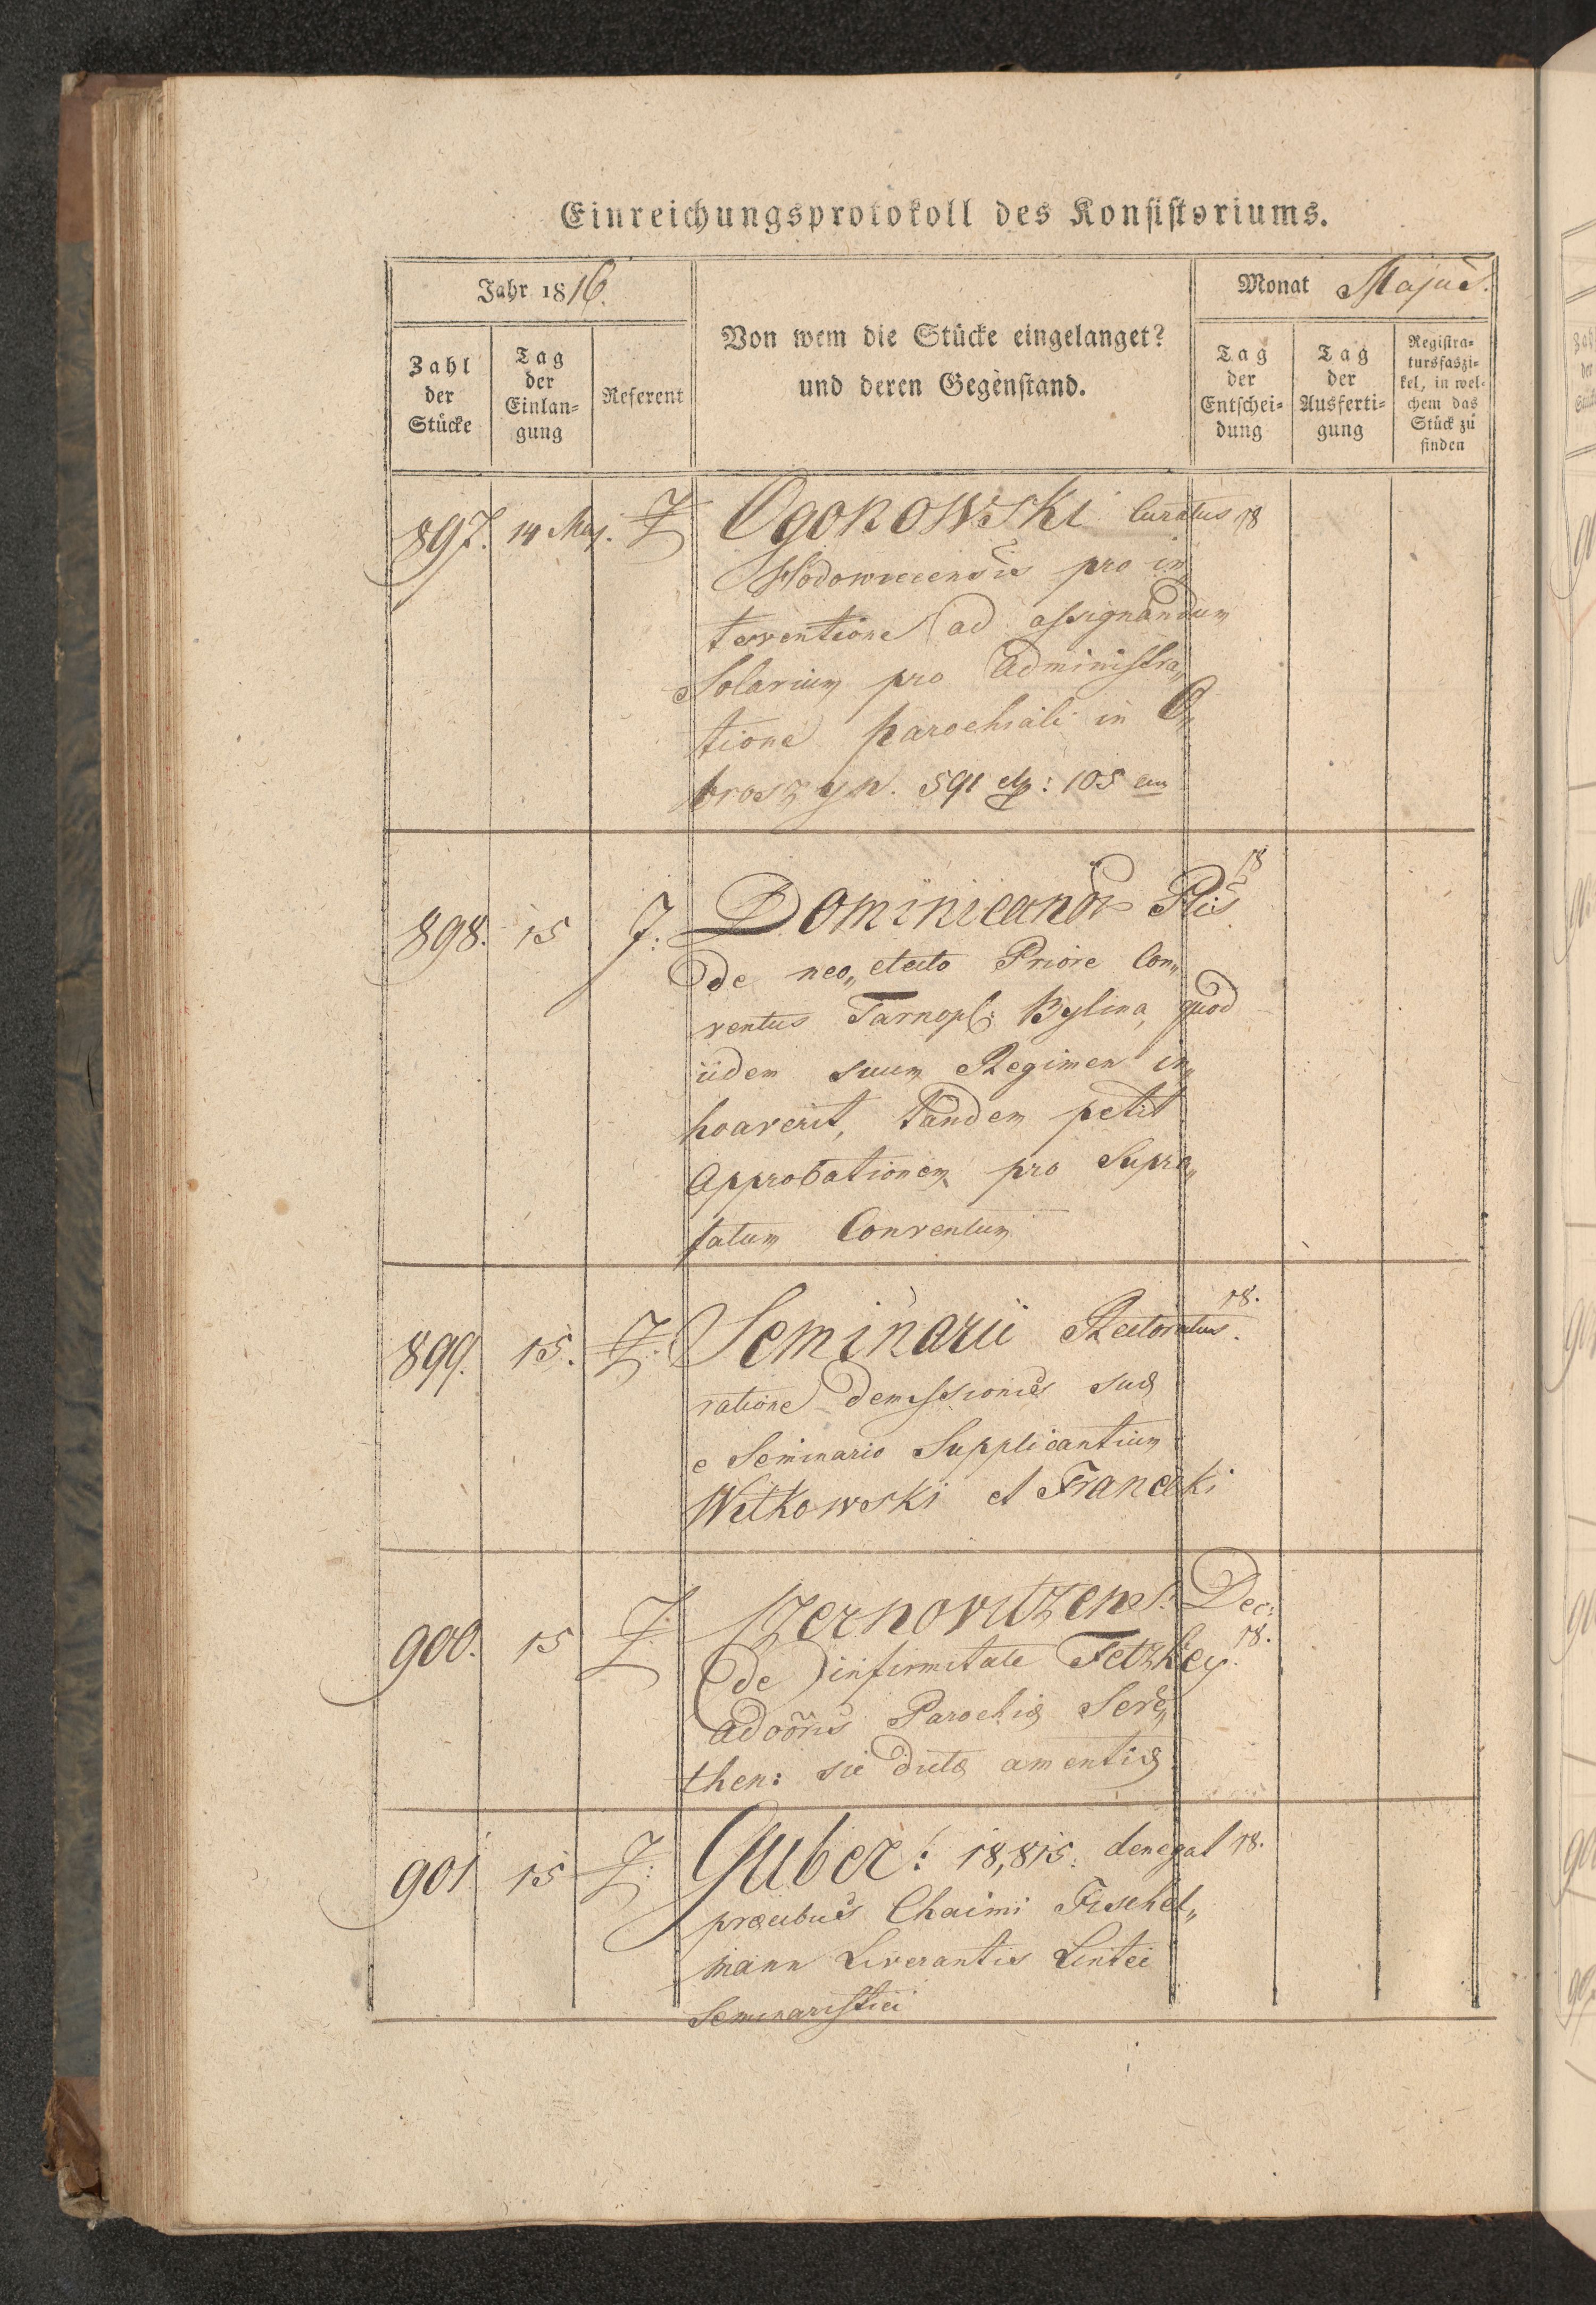 Einreichungsprotokoll des Konsistoriums.
Jahr 1816.
Von wem die Stücke eingelanget?
und deren Gegenstand.
Monat Majus.
Zahl
der
Stücke
Tag
der
Einlan-
gung
Referent
Tag
der
Entschei-
dung
Tag
der
Ausferti-
gung
Registra-
tursfaszi-
kel, in wel-
chem das
Stück zu
finden
897. 14 Maj. Ogonowski Curatus 18
Hodowicensis pro in
terventione ad assignandum
Solarium pro administra„
tione parochiali in O„
broszyn. 591 : 105
898. 15 J: Dominicanor 18
De neo„electo Priore Con„
ventus Tarnopl: Bylina, quod
iidem suum Regimen in„
hoaverit, tandem petit
Approbationem pro Supra„
fatum Conventum
899. 15. Seminarii Rectoratus. 18.
ratione demissionis suæ
e Seminario Supplicantium
Witkowski et Franceki
900. 15 Czernovitzens: Dec:
de infirmitate Tetzkey 18.
adoõris Parochiæ Sere„
then: sic dictæ amentiæ
901 15 Guber: 18,815: denegat 18.
præcibus Chaimi Fischel„
mann Liverantis Lintei
Seminaristici